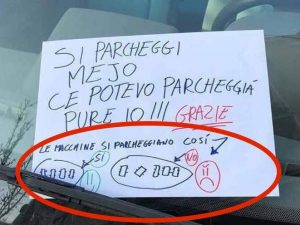 SI PARCHEGGI
MEJO
CE POTEVO PARCHEGGIÁ
PURE IO!!! GRAZIE
LE MACCHINE SI PARCHEGGIANO COSÍ
SI NO